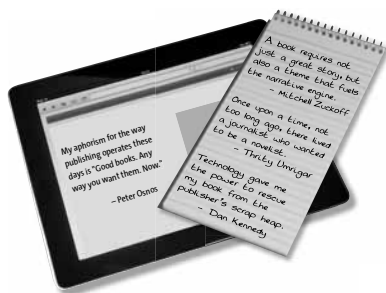 My aphorism for the way
publishing operates these
days is "Good books. Any
way you want them. Now."
~Peter Osnos
A book requires not
just a great story, but
also a theme that fuels
the narrative engine.
~ Mitchell Zuckoff
Once upon a time, not
too long ago, there lived
a journalist who wanted
to be a novelist.
~ Thrity Umrigar
Technology gave me
the power to rescue
my book from the
publisher's scrap heap.
~ Dan Kennedy